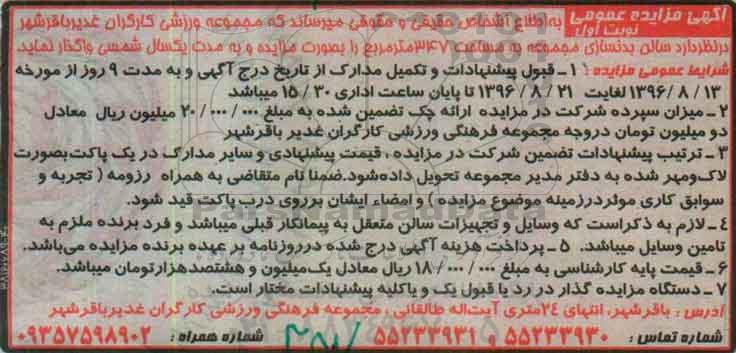 آگهی مزایده عمومی
نوبت اول
به اطلاع اشخاص حقیقی و حقوقی میرساند که مجموعه ورزشی کارگران غدیرباقرشهر
درنظردارد سالن بدنسازی مجموعه به مساحت ۳۴۷مترمربع را بصورت مزایده و به مدت یکسال شمسی واگذار نماید.
شرایط عمومی مزایده : ۱ــ قبول پیشنهادات و تکمیل مدارک از تاریخ درج آگهی و به مدت ۹ روز از مورخه
۱۳ / ۸ /۱۳۹۶ لغایت ۲۱ / ۸ / ۱۳۹۶ تا پایان ساعت اداری ۳۰ / ۱۵ میباشد
۲ــ میزان سپرده شرکت در مزایده ارائه چک تضمین شده به مبلغ ۰۰۰/ ۰۰۰/ ۲۰ میلیون ریال معادل
دو میلیون تومان دروجه مجموعه فرهنگی ورزشی کارگران غدیر باقرشهر
۳ــ ترتیب پیشنهادات تضمین شرکت در مزایده ، قیمت پیشنهادی و سایر مدارک در یک پاکت بصورت
لاک ومهر شده به دفتر مدیر مجموعه تحویل داده شود.ضمنا نام متقاضی به همراه رزومه ( تجربه و
سوابق کاری موثردرزمینه موضوع مزایده ) و امضاء ایشان برروی درب پاکت قید شود.
۴ــ لازم به ذکراست که وسایل و تجهیزات سالن متعقل به پیمانکار قبلی میباشد و فرد برنده ملزم به
تامین وسایل میباشد. ۵ــ پرداخت هزینه آگهی درج شده درروزنامه بر عهده برنده مزایده می‌باشد.
۶ــ قیمت پایه کارشناسی به مبلغ ۰۰۰/ ۰۰۰/ ۱۸ ریال معادل یک میلیون و هشتصدهزارتومان میباشد.
۷ــ دستگاه مزایده گذار در رد یا قبول یک و یاکلیه پیشنهادات مختار است.
آدرس : باقرشهر، انتهای ۲۴متری آیت‌اله طالقانی ، مجموعه فرهنگی ورزشی کارگران غدیرباقرشهر
شماره تماس : ۵۵۲۳۳۹۳۰ و ۵۵۲۳۳۹۳۱ شماره همراه : ۰۹۳۵۷۵۹۸۹۰۲
ParsNamadData